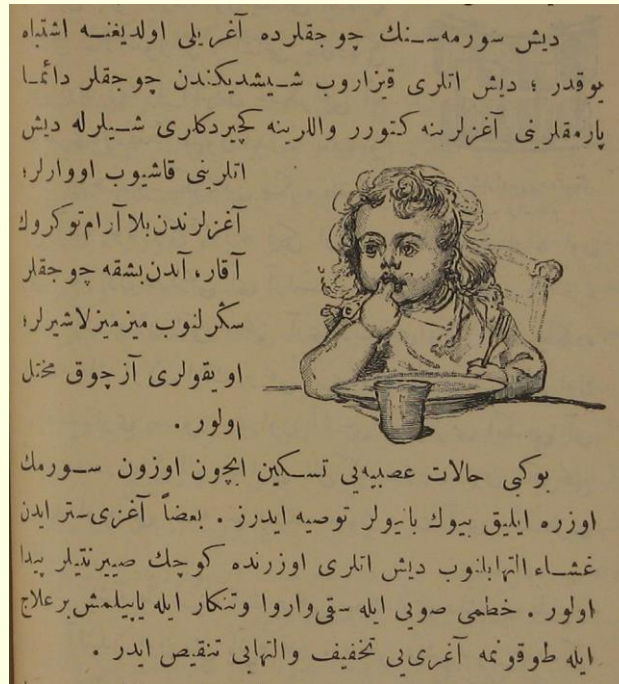 ديش سورمه‌سنك چوجقلرده آغريلى اولديغنه اشتباه
يوقدر ؛ ديش اتلرى قيزاروب شيشديكندن چوجقلر دائما
پارمقلرينى آغزلرينه كتورر واللرينه كچيردكلرى شيلرله ديش
اتلرينى قاشيوب اووارلر؛
آغزلرندن بلا آرام توكروك
آقار، آندن بشقه چوجقلر
سڭرلنوب ميزميزلاشيرلر؛
اويقولرى آز چوق مختل
اولور .
بوكبى حالات عصبيه‌يى تسكين ايچون اوزون سورمك
اوزره ايليق بيوك بانيولر توصيه ايدرز . بعضاً آغزى ستر ايدن
غشاء التهابلنوب ديش اتلرى اوزرنده كوچك صييرنتيلر پيدا
اولور . خطمى صويى ايله سقى واروا وتنكار ايله ياپيلمش بر علاج
ايله طوقونمه آغرى‌يى تخفيف والتهابى تنقيص ايدر .